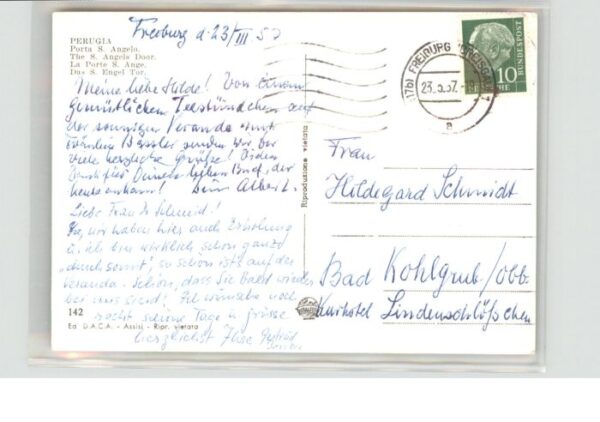 Freiburg d. 23/III 57
PERUGIA
Porta S. Angelo.
The S. Angels Door.
La Porte S. Ange.
Das S. Engel Tor.
Meine liebe Hilde! Von einem
gemütlichen Teestündchen auf
der sonnigen Veranda mit
senden wir Dir
viele herzliche Grüße! Vielen
Dank für Deinen lieben Brief, der
heute ankam! Dein Albert.
Liebe Frau Dr Schmid!
wir haben hier auch Erholung
u. ich bin wirklich schon ganz
"durchsonnt", so schön ist's auf der
Veranda. Schön, dass Sie bald wieder
bei uns sind! wünsche noch
recht schöne Tage u. grüsse
herzlichst Ihre
142
Ed. D.A.C.A. - Assisi - Ripr. vietata
Riproduzione vietata
(17b) FREIBURG (BREISGAU) 1
23.5.57
a
10
DEUTSCHE BUNDESPOST
Frau
Hildegard Schmidt
Bad Kohlgrub/Obb.
Kurhotel Lindenschlößchen